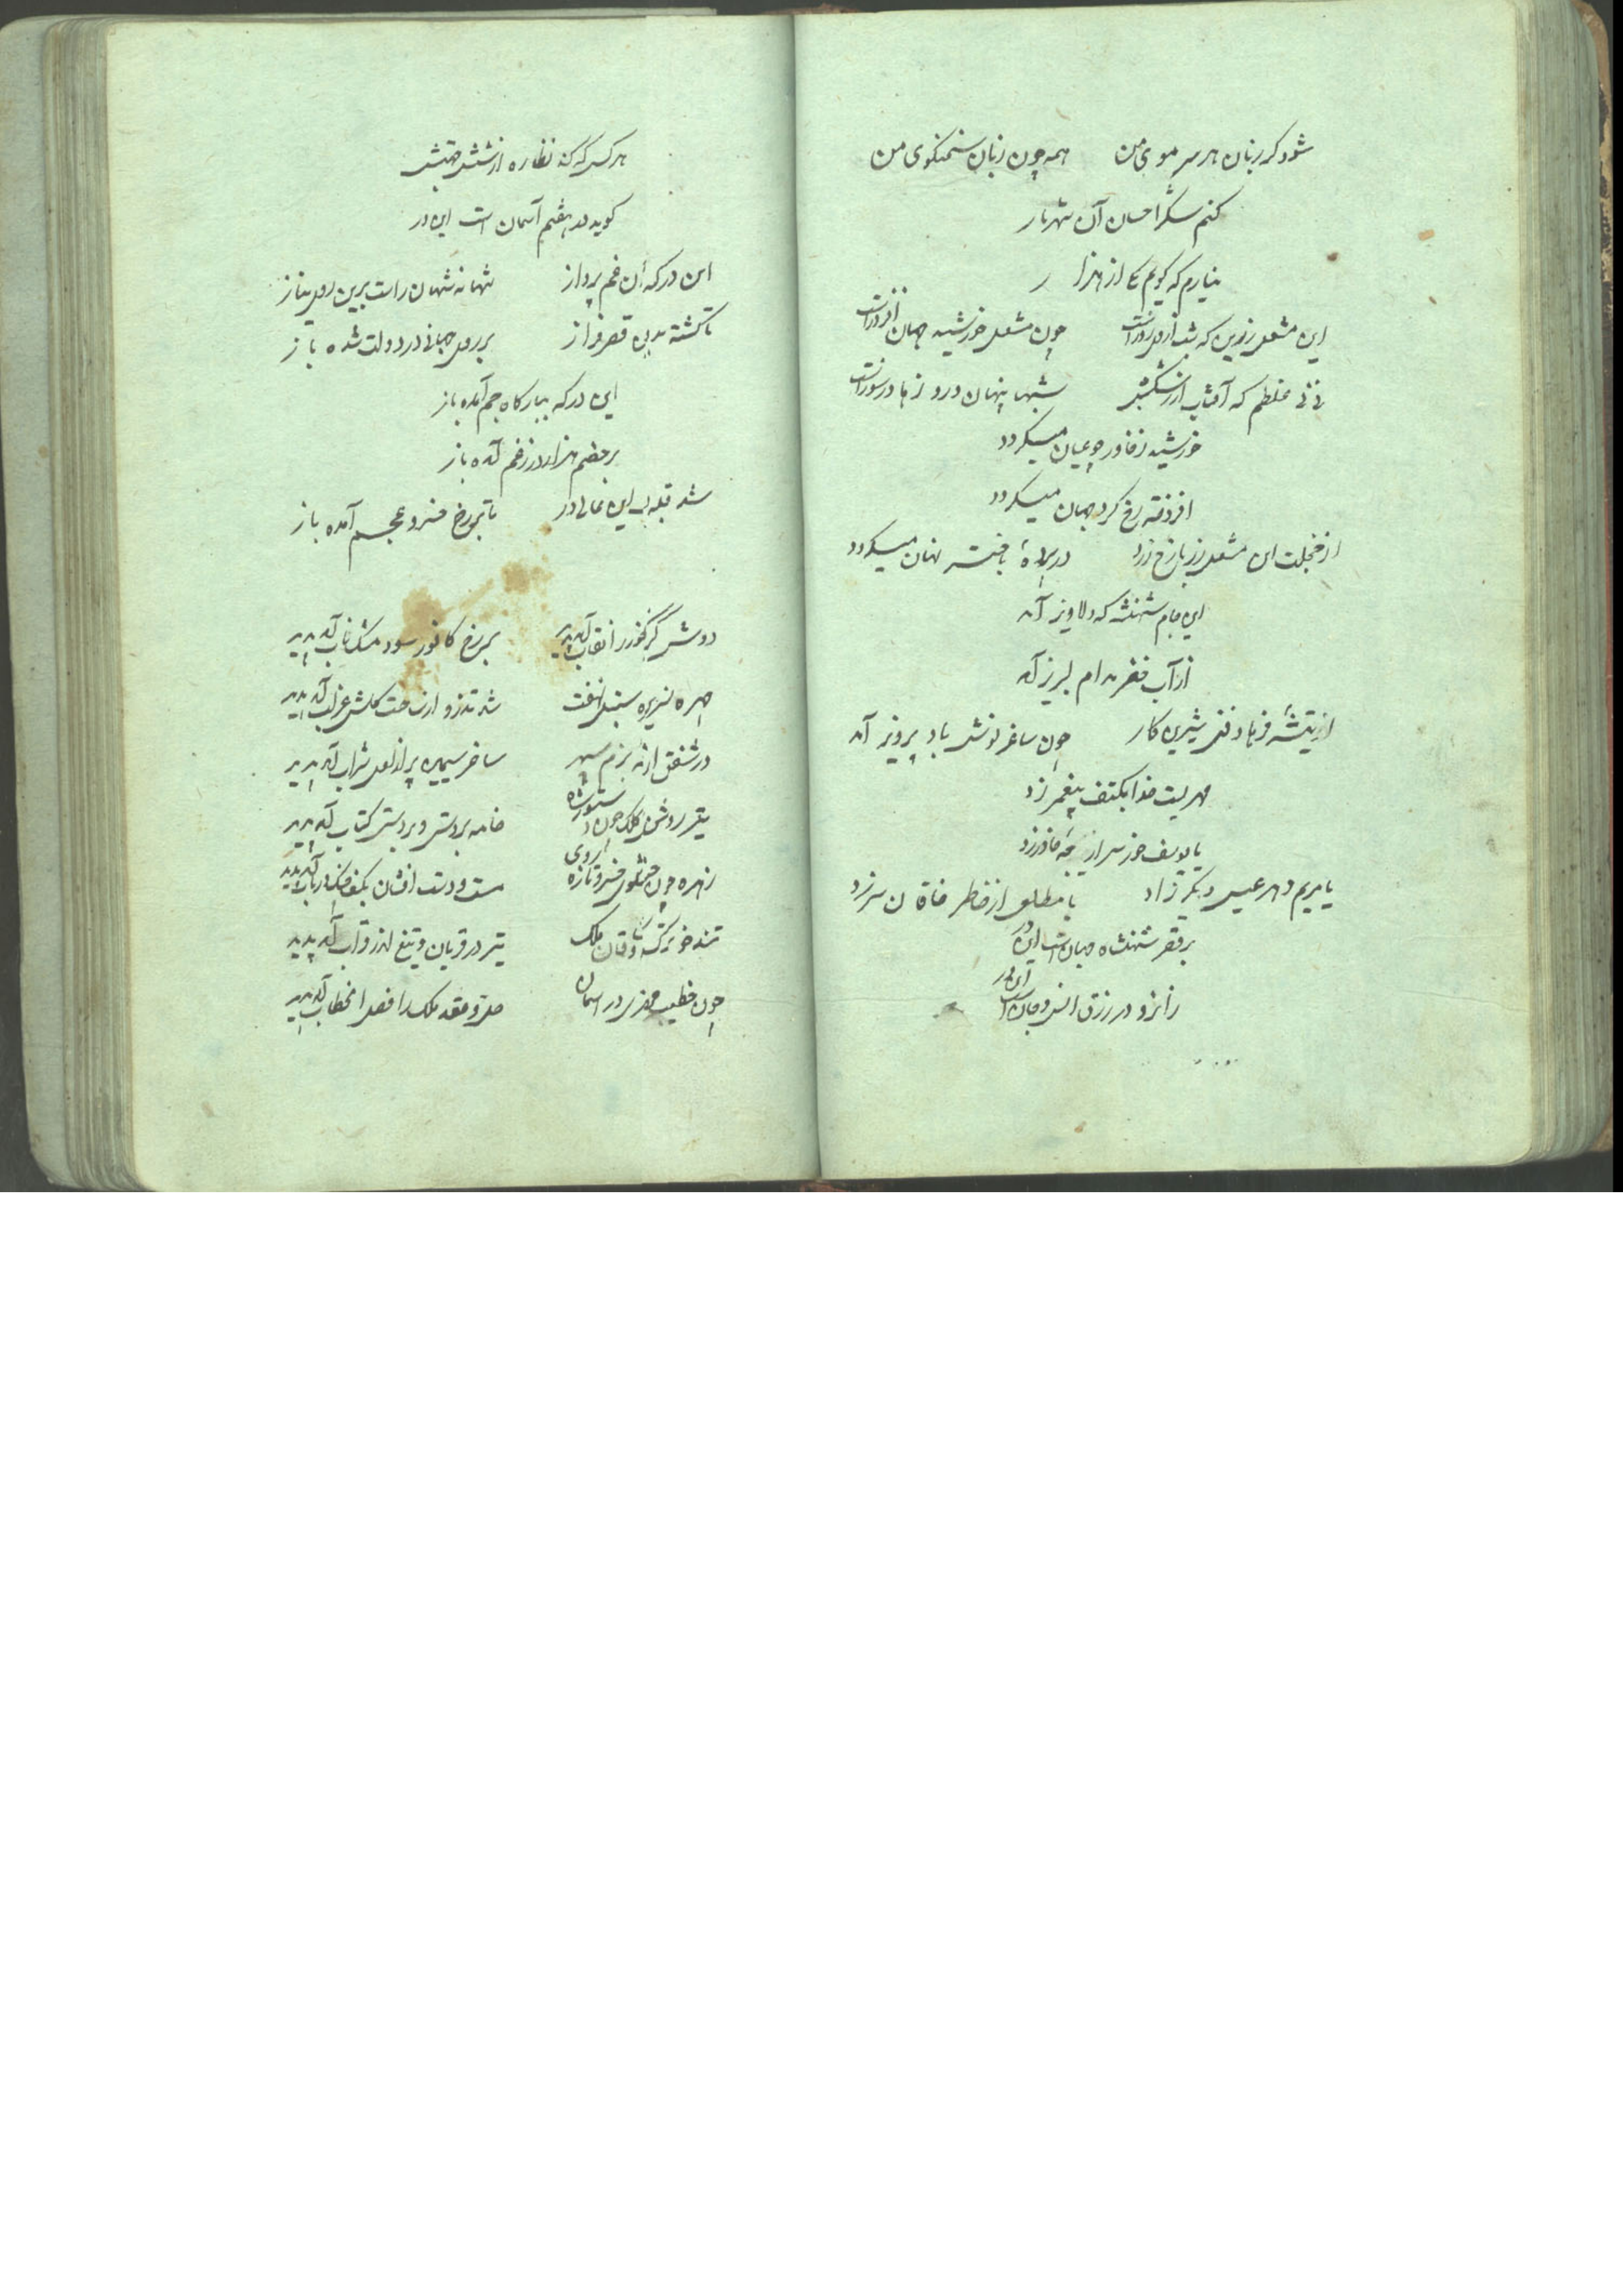 شود گر زبان هر سر موی من همه چون زبان سخنکوی من
کنم شکر احسان آن شهریار
نیارم که کویم یکی از هزار
این مشعل زرین که شب افروز است چون مشعل خورشید جهان افروز است
نی نی غلطم که آفتاب از رشکش شبها پنهان و روزها در سوز است
خورشید ز خاور چو عیان میکردد
افروخته رخ کرد جهان میکردد
از خجلت این مشعل زر با رخ زرد در پردهٔ باختر نهان میکردد
این جام شهنشه که دلاویز آمد
از آب خضر مدام لبریز آمد
از تیشهٔ فرهاد فنی شیرین کار چون ساغر نوش باد پرویز آمد
مهریست خدا بکتف پیغمبر زد
یا یوسف خور سر از چه خاور زد
یا مریم دهر عیسی دیکر زاد یا مطلع از خاطر خاقان سر زد
بر قصر شهنشاه جهانست این در
رانرو در رزق انس و جانست این در
هر کس که کند نظاره از شش جهتش
کوید در هفتم آسمان است این در
این درکه آن غم پرداز شهانه شهان راست برین روی نیاز
تا کشته بدین قصر فراز بر روی جهانی در دولت شده باز
این در که ببارکاه جم آمده باز
بر خصم هزار در ز غم آمده باز
شد قبله این عالی در تا بر رخ خسرو عجم آمده باز
دوش کز خور را نقاب آمد پدید بر رخ کافور سود مشک ناب آمد پدید
چهره نسرین سنبل نهفت شد تذرو از ساحت کلشن غراب آمد پدید
در شفق از مه بزم سپهر ساغر سیمین پر از لعل شراب آمد پدید
تیر روشن کلک چون دستور شاه خامه بر دستی و بر دستی کتاب آمد پدید
زهره چون خنیاکر خسرو تازه روی مست و دست افشان بکف چنک و رباب آمد پدید
تند خو ترک وثاقان ملک تیر در قربان و تیغ اندر قراب آمد پدید
چون خطیب مشتری در آسمان حل و عقد ملک را فصل الخطاب آمد پدید